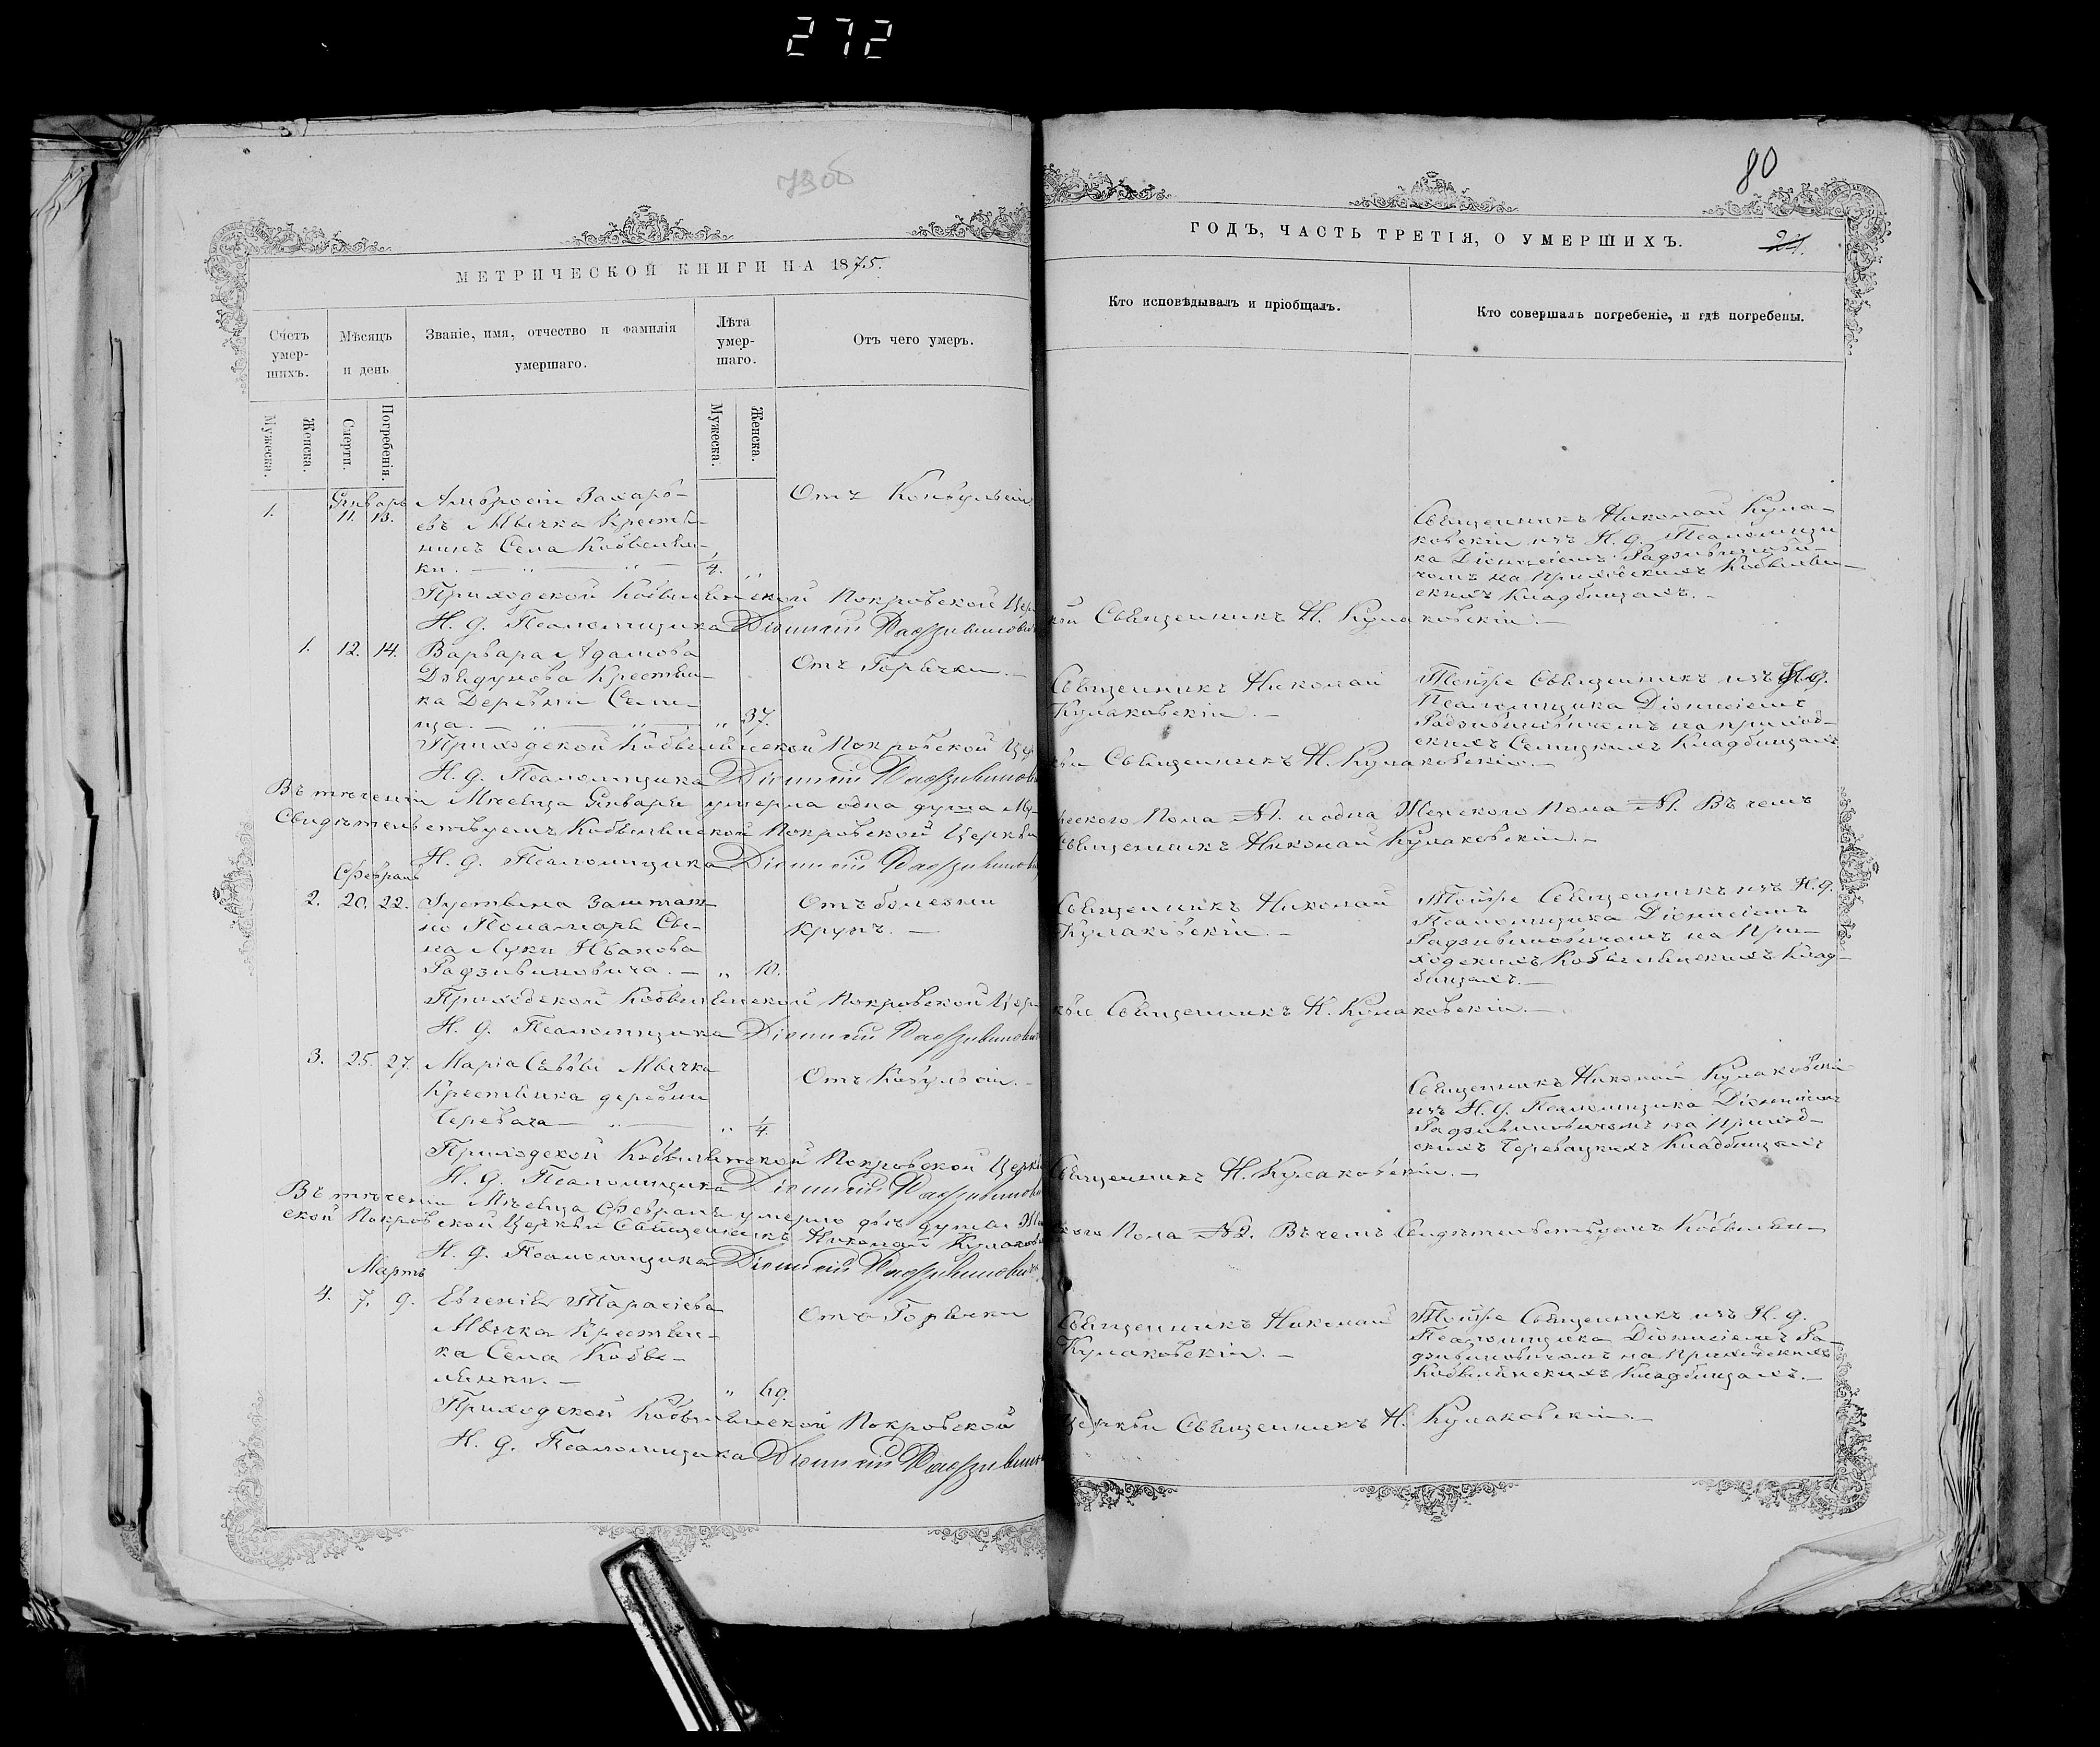 272
79об
80
МЕТРИЧЕСКОЙ КНИГИ НА 1875.
ГОДЪ, ЧАСТЬ ТРЕТІЯ, О УМЕРШИХЪ.
24.
Счетъ умер-шихъ.
Мѣсяцъ и день
Званіе, имя, отчество и фамилія умершаго.
Лѣта умер-шаго.
Отъ чего умеръ.
Кто исповѣдывалъ и пріобщалъ.
Кто совершалъ погребеніе, и гдѣ погребены.
Мужеска.
Женска.
Смерти.
Погребенія.
Мужеска.
Женска.
Январь
1. 11. 13.
Амвросій Захарь-
евъ Мычка Крестья-
нинъ Села Кобыльн-
ки. — „ — „ — 1/4. „
Отъ Конвульсіи
Священникъ Николай Кула-
ковскій изъ И. д. Псаломщи
ка Діонисіемъ Радзивинови-
чемъ на Приходскихъ Кобыльн-
скихъ Кладбищахъ. –
Приходской Кобыльнской Покровской Церкви Священникъ Н. Кулаковскій. –
И. д. Псаломщика Діонисій Радзивиновичъ
1. 12. 14.
Варвара Адамова
Дзядукова Крестьян-
ка Деревни Семе-
ца. — „ — „ — „ 37.
Отъ Горячки. –
Священникъ Николай
Кулаковскій. –
Тойже Священникъ изъ И. д.
Псаломщика Діонисіемъ
Радзивиновичемъ на приход-
скихъ Семецкихъ Кладбищахъ
Приходской Кобыльнской Покровской Церкви Священникъ Н. Кулаковскій. –
И. д. Псаломщика Діонисій Радзивиновичъ
Въ теченіи Мѣсяца Января умерла одна душа Мужеского Пола №1. и одна Женского Пола №1. Въ чемъ
Свидѣтельствуемъ Кобыльнской Покровской Церкви Священникъ Николай Кулаковскій. –
И. д. Псаломщика Діонисій Радзивиновичъ
Февраль
2. 20. 22.
Іустына Заштат-
но Пономаря Сы-
на Луки Иванова
Радзивиновича. – „ 10.
Отъ болезни
Крупъ. –
Священникъ Николай
Кулаковскій. –
Тойже Священникъ изъ И. д.
Псаломщика Діонисіемъ
Радзивиновичемъ на При-
ходскихъ Кобыльнскихъ Клад-
бищахъ. –
Приходской Кобыльнской Покровской Церкви Священникъ Н. Кулаковскій. –
И. д. Псаломщика Діонисій Радзивиновичъ
3. 25. 27.
Марія Мычка
Крестьянка деревни
Черевача — „ — „ 1/4.
Отъ Ковульсіи. –
Священникъ Николай Кулаковскій
изъ И. д. Псаломщика Діонисіемъ
Радзивиновичемъ на Приход-
скихъ Черевацкихъ Кладбищахъ
Приходской Кобыльнской Покровской Церкви Священникъ Н. Кулаковскій. –
И. д. Псаломщика Діонисій Радзивиновичъ
Въ теченіи Мѣсяца Февраль умерло двѣ души Женского Пола №2. Въ чемъ Свидѣтельствуемъ Кобыльн-
ской Покровской Церкви Священникъ Николай Кулаковскій
И. д. Псаломщика Діонисій Радзивиновичъ
Мартъ
4. 7. 9.
Евгенія Тарасіева
Мычка Крестьян-
ка Села Кобы-
льнки. – „ 69.
Отъ Горячки
Священникъ Николай
Кулаковскій. –
Тойже Священникъ изъ И. д.
Псаломщика Діонисіемъ Ра-
дзивиновичемъ на Приходскихъ
Кобыльнскихъ Кладбищахъ. –
Приходской Кобыльнской Покровской Церкви Священникъ Н. Кулаковскій. –
И. д. Псаломщика Діонисій Радзивиновичъ